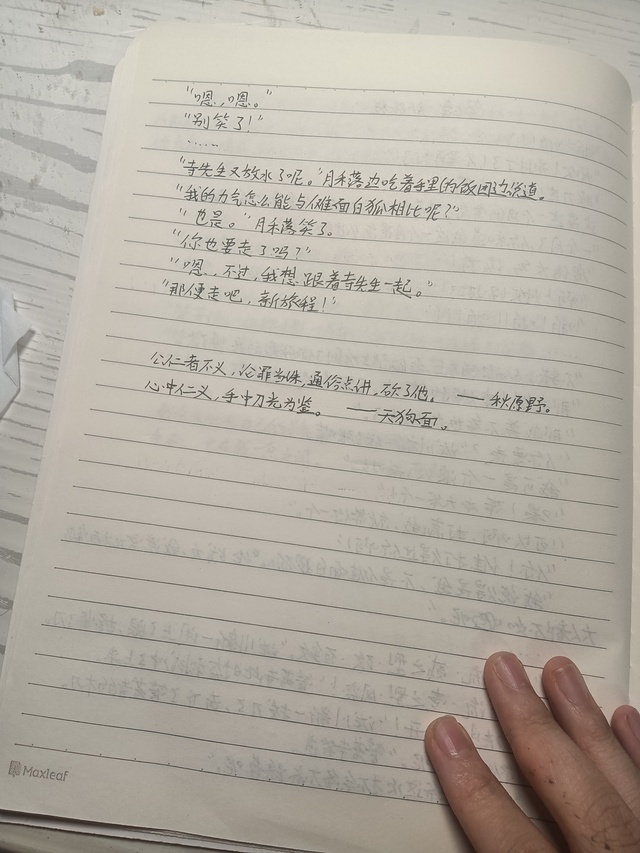 “嗯,嗯。”
“别笑了!”
……
“寺先生又放水了呢。”月禾落边吃着手里的饭团边说道。
“我的力气怎么能与傩面白狐相比呢?”
“也是。”月禾落笑了。
“你也要走了吗?”
“嗯,不过,我想跟着寺先生一起。”
“那便走吧,新旅程!”
公仁者不义,论罪当诛,通俗点讲,砍了他。——秋原野。
心中仁义,手中刀光为鉴。——天狗面。
Maxleaf